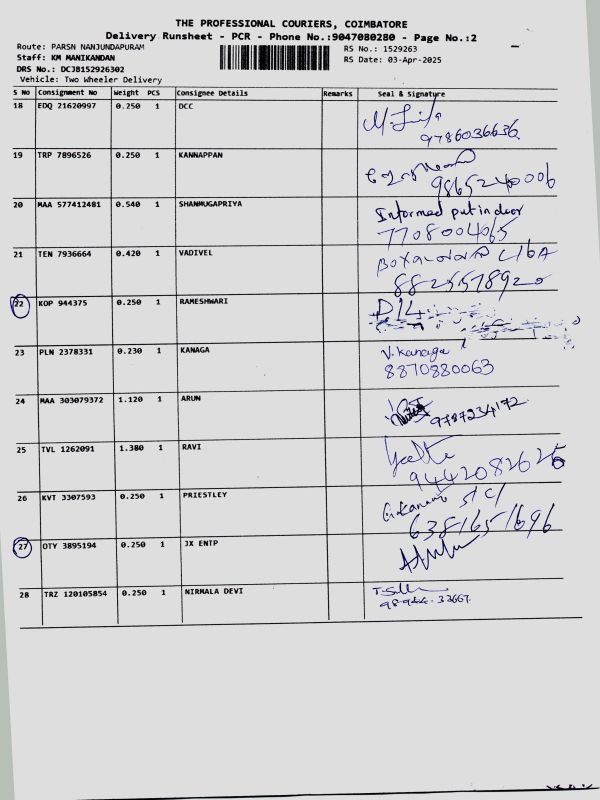 THE PROFESSIONAL COURIERS, COIMBATORE
Delivery Runsheet - PCR - Phone No.:9047080280 - Page No.:2
Route: PARSN NANJUNDAPURAM
RS No.: 1529263
Staff: KM MANIKANDAN
RS Date: 03-Apr-2025
DRS No.: DCJB152926302
Vehicle: Two Wheeler Delivery
S No Consignment No Weight PCS Consignee Details Remarks Seal & Signature
18 EDQ 21620997 0.250 1 DCC
9786036636
19 TRP 7896526 0.250 1 KANNAPPAN
9865240006
20 MAA 577412481 0.540 1 SHANMUGAPRIYA Informed put in door
7708004065
21 TEN 7936664 0.420 1 VADIVEL
22 KOP 944375 0.250 1 RAMESHWARI
23 PLN 2378331 0.230 1 KANAGA V. Kanaga
8870880063
24 MAA 303079372 1.120 1 ARUN 9787234172
25 TVL 1262091 1.380 1 RAVI
9442082626
26 KVT 3307593 0.250 1 PRIESTLEY
6381651696
27 OTY 3895194 0.250 1 JX ENTP
28 TRZ 120105854 0.250 1 NIRMALA DEVI
98-944-33667